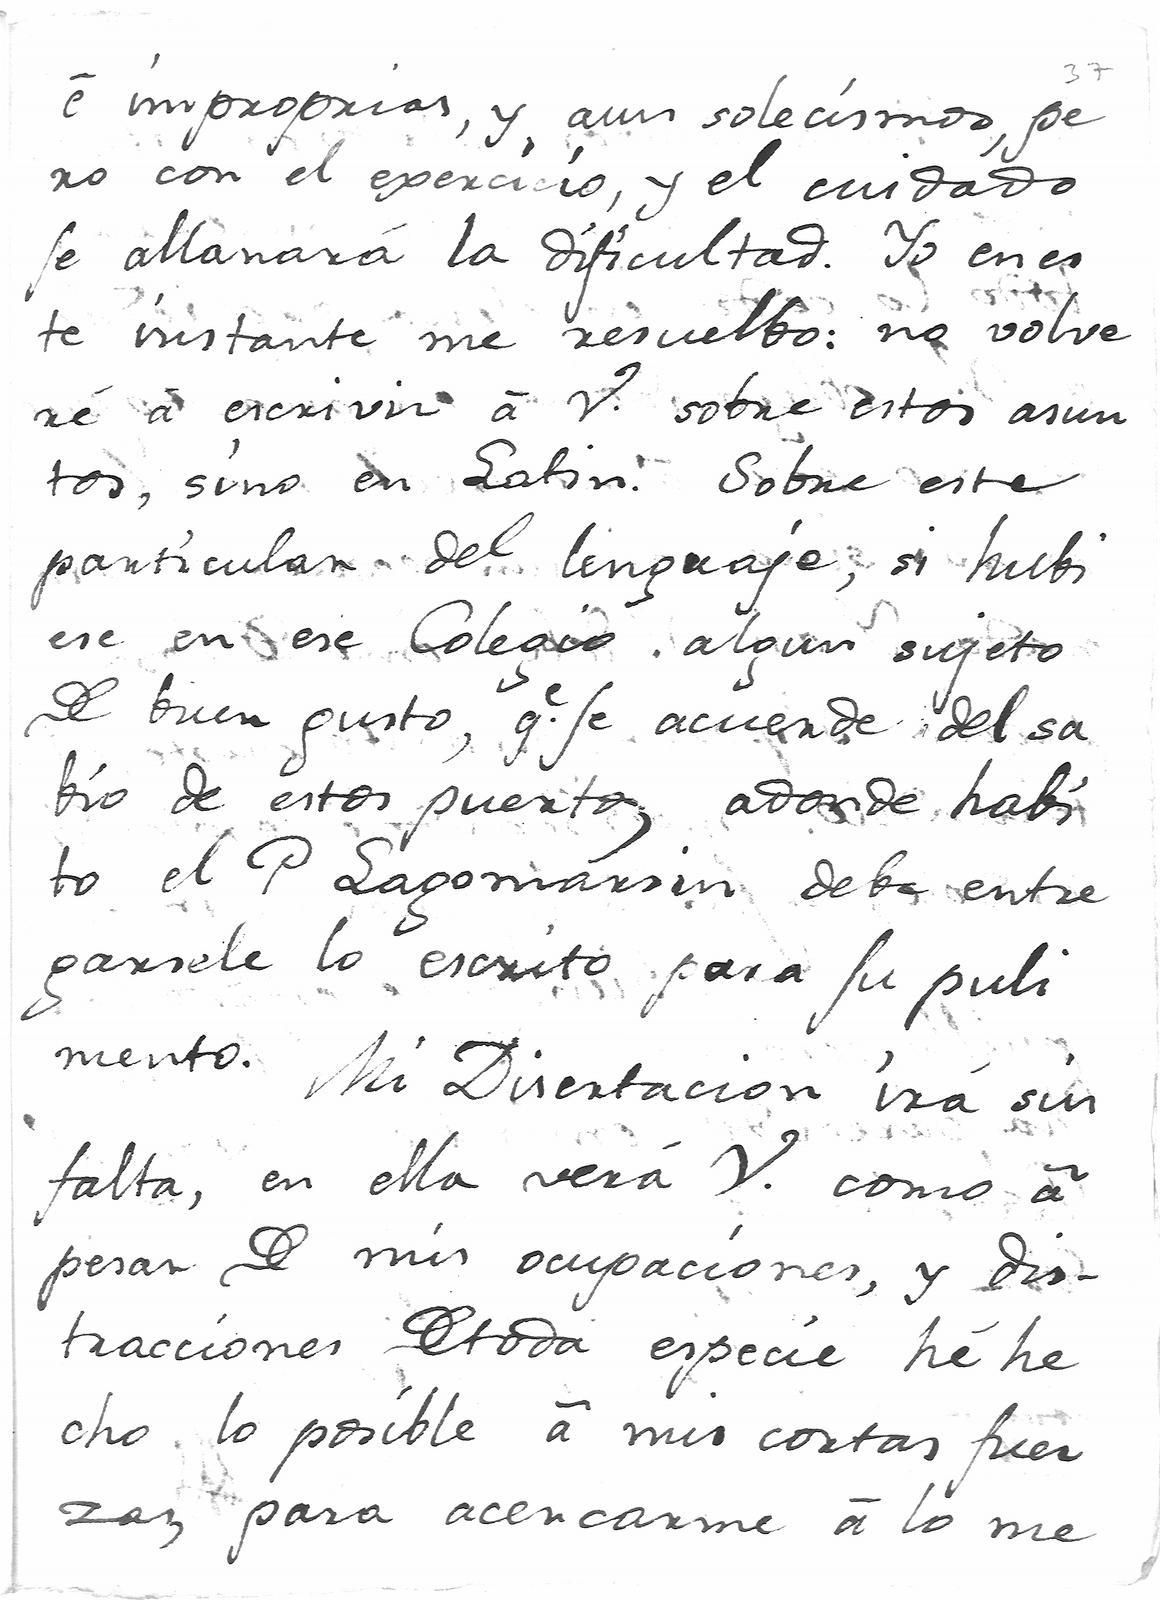 37
ē improprias, y aun solecismos, pe
ro con el exercicio, y el cuidado
se allanará la dificultad. Yo en es
te instante me resuelbo: no volve
ré ā escrivir ā V. sobre estos asun
tos, sino en Latin. Sobre este
particular del lenguaje, si hubi
ese en ese Colegio algun sujeto
De buen gusto, qe. se acuerde del sa
bio de estos puertos, adonde habi
to el P Lagomarsin debe entre
garsele lo escrito para su puli
mento. Mi Disertacion irá sin
falta, en ella verá V. como ā
pesar De mis ocupaciones, y dis-
tracciones De toda especie hé he
cho lo posible ā mis cortas fuer
zas, para acercarme ā lo me